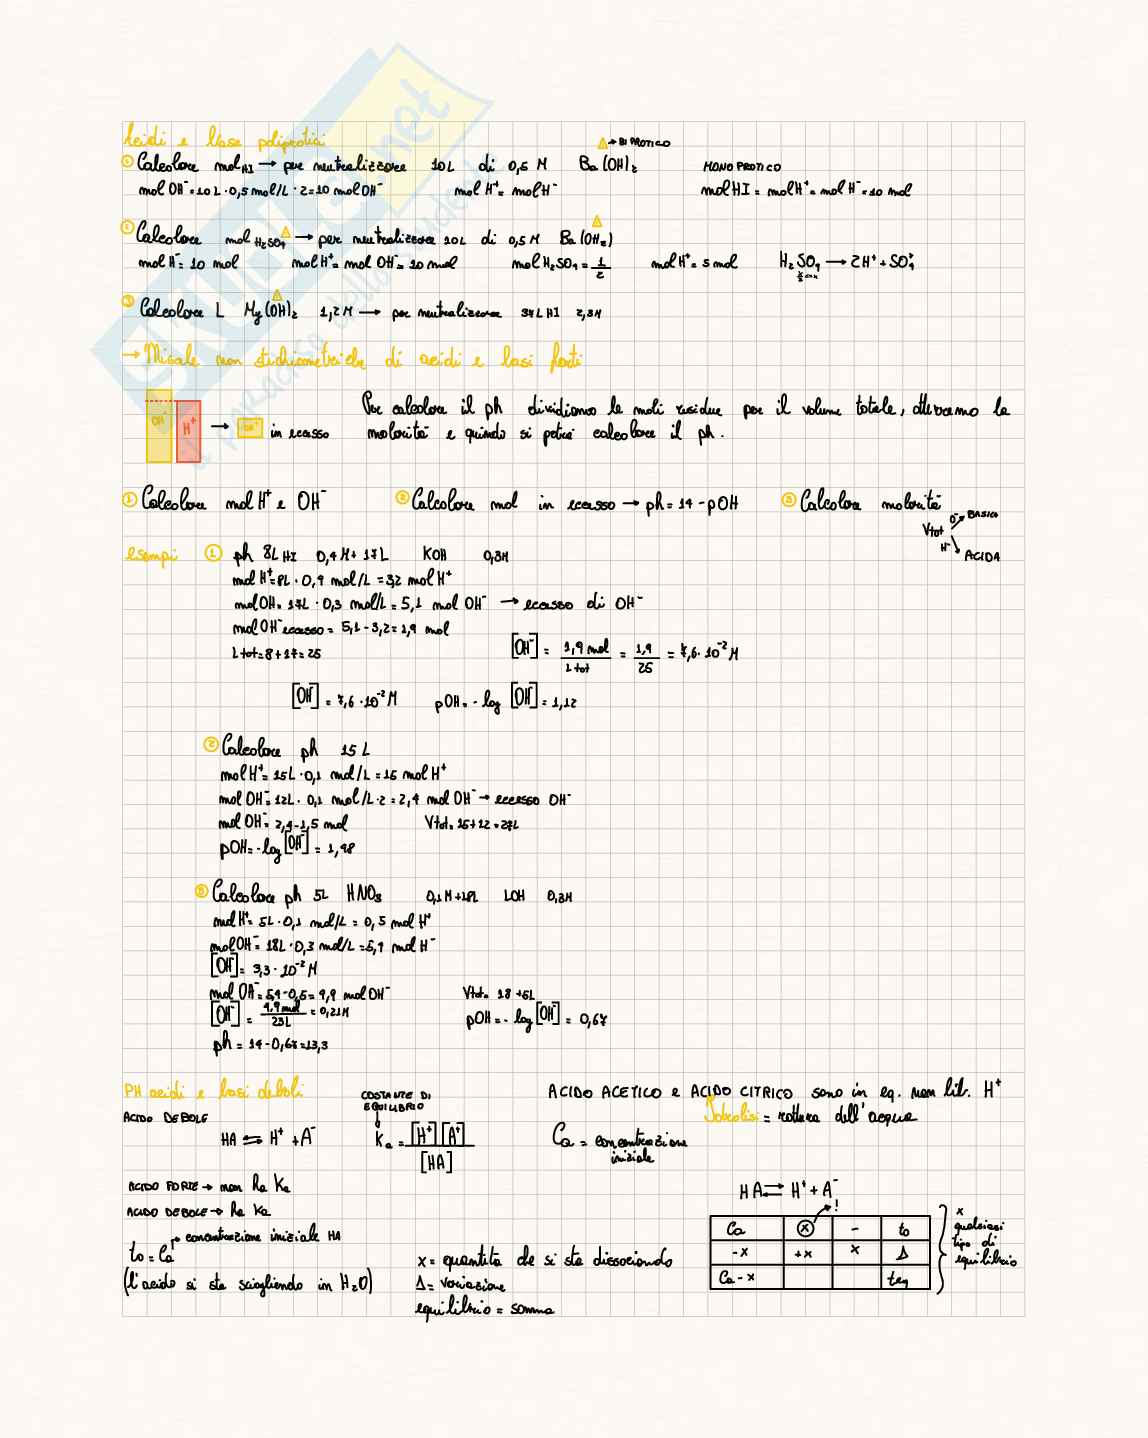 Acidi e base poliprotici
△→BIPROTICO
① Calcolare mol HI → per neutralizzare 10L di 0,5 M Ba(OH)₂ MONOPROTICO
mol OH⁻=10L·0,5mol/L·2=10 mol OH⁻ mol H⁺= mol H⁻ mol HI = mol H⁺= mol H⁻=10 mol
① Calcolare mol H₂SO₄ → per neutralizzare 10L di 0,5 M Ba(OH₂)
mol H⁻= 10 mol mol H⁺= mol OH⁻= 10 mol mol H₂SO₄ = 1/2 mol H⁺= 5 mol H₂SO₄ → 2H⁺+SO₄²⁻
③ Calcolare L Mg(OH)₂ 1,2M → per neutralizzare 34L HI 2,3M
→ Miscele non stechiometriche di acidi e basi forti
OH⁻ H⁺ → OH⁻ in eccesso
Per calcolare il ph dividiamo le moli residue per il volume totale, otteniamo la
molarità e quindi si potrà calcolare il ph.
① Calcolare mol H⁺ e OH⁻ ② Calcolare mol in eccesso → ph= 14 - pOH ③ Calcolare molarità
Vtot O⁻ BASICA
H⁻ ACIDA
Esempi ① ph 8L HI 0,4M+ 17L KOH 0,3M
mol H⁺=8L · 0,4 mol/L =3,2 mol H⁺
mol OH= 17L · 0,3 mol/L = 5,1 mol OH⁻ → eccesso di OH⁻
mol OH⁻ eccesso = 5,1 - 3,2=1,9 mol
L tot=8+17=25 [OH⁻] = 1,9 mol/L tot = 1,9/25 = 7,6·10⁻² M
[OH⁻] = 7,6·10⁻² M pOH=-log [OH⁻] = 1,12
② Calcolare ph 15L
mol H⁺= 15L·0,1 mol/L = 15 mol H⁺
mol OH⁻= 12L· 0,1 mol/L·2 = 2,4 mol OH⁻ → eccesso OH⁻
mol OH⁻= 2,4-1,5 mol Vtot= 15+12=27L
pOH=-log[OH⁻] = 1,48
③ Calcolare ph 5L HNO₃ 0,1M+18L LOH 0,3M
mol H⁺= 5L·0,1 mol/L = 0,5 mol H⁺
mol OH⁻= 18L·0,3 mol/L =5,4 mol H⁻
[OH⁻]= 3,3·10⁻² M
mol OH⁻= 5,4-0,5= 4,9 mol OH⁻ Vtot= 18+5L
[OH⁻] = 4,9 mol/23L = 0,21M pOH=-log[OH⁻] = 0,67
ph = 14-0,67=13,3
PH acidi e basi deboli
COSTANTE DI
EQUILIBRIO
ACIDO ACETICO e ACIDO CITRICO sono in eq. non lib. H⁺
ACIDO DEBOLE
Idrolisi = rottura dell'acqua
HA ⇌ H⁺ + A⁻ Ka = [H⁺][A⁺]/[HA] Ca = concentrazione
iniziale
ACIDO FORTE → non ha Ka
ACIDO DEBOLE → ha Ka
concentrazione iniziale HA
to = Ca
(l'acido si sta sciogliendo in H₂O)
x = quantità che si sta dissociando
Δ= variazione
equilibrio = somma
HA ⇌ H⁺ + A⁻
!
Ca ⊗ - to
-x +x x Δ
Ca-x teq
x
qualsiasi
tipo di
equilibrio
SKUOLA.net
il paradiso dello studente